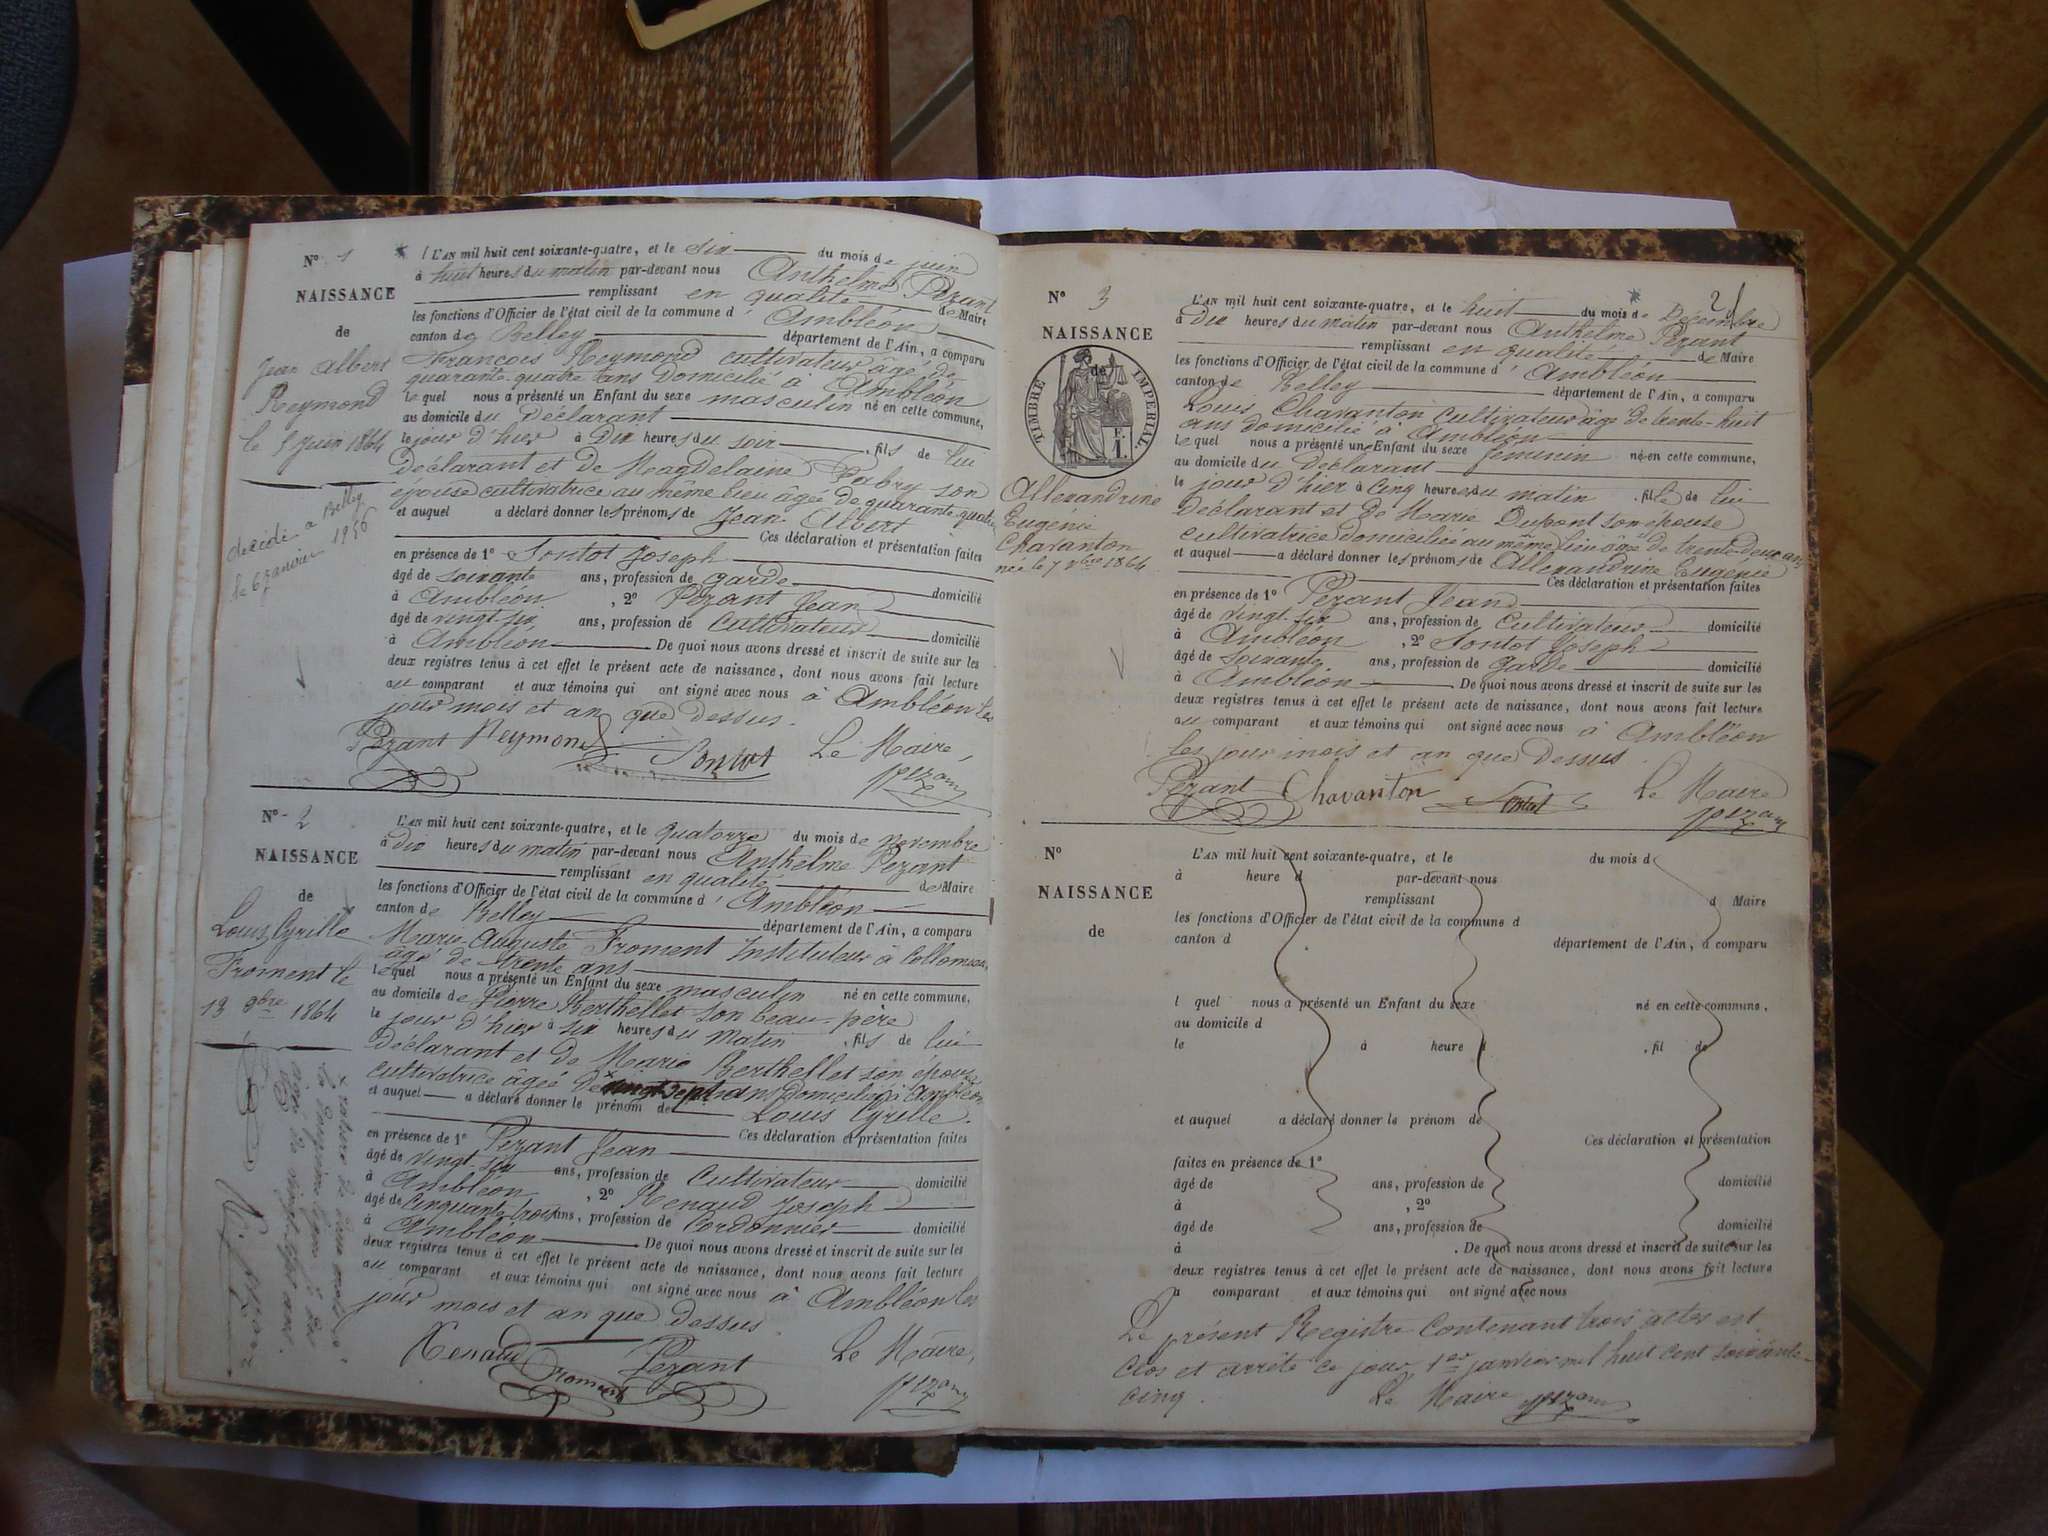 N° 1
NAISSANCE
de
Jean Albert
Reymond
le 5 Juin 1864
décédé à Belley
le 6 janvier 1956
L'AN mil huit cent soixante-quatre, et le six du mois de juin
à huit heures du matin par-devant nous Anthelme Pezant
remplissant en qualité de Maire
les fonctions d'Officier de l'état civil de la commune d' Ambléon
canton de Belley département de l'Ain, a comparu
François Reymond cultivateur âgé de
quarante-quatre ans domicilié à Ambléon
lequel nous a présenté un Enfant du sexe masculin né en cette commune,
au domicile du déclarant
le jour d'hier à Dix heures du soir, fils de lui
déclarant et de Magdelaine Fabry son
épouse cultivatrice au même lieu âgée de quarante quatre
et auquel a déclaré donner les prénoms de Jean Albert
Ces déclaration et présentation faites
en présence de 1° Sontot Joseph
âgé de soixante ans, profession de garde domicilié
à Ambléon, 2° Pezant Jean
âgé de vingt-six ans, profession de Cultivateur domicilié
à Ambléon De quoi nous avons dressé et inscrit de suite sur les
deux registres tenus à cet effet le présent acte de naissance, dont nous avons fait lecture
au comparant et aux témoins qui ont signé avec nous à Ambléon les
jour mois et an que dessus.
Pezant Reymond Sontot Le Maire,
Pezant
N° 2
NAISSANCE
de
Louis Cyrille
Froment le
13 9bre 1864
L'AN mil huit cent soixante-quatre, et le quatorze du mois de novembre
à dix heures du matin par-devant nous Anthelme Pezant
remplissant en qualité de Maire
les fonctions d'Officier de l'état civil de la commune d' Ambléon
canton de Belley département de l'Ain, a comparu
Marie Auguste Froment Instituteur à
âgé de trente ans
lequel nous a présenté un Enfant du sexe masculin né en cette commune,
au domicile de Pierre Berthellet son beau-père
le jour d'hier à six heures du matin, fils de lui
déclarant et de Marie Berthellet son épouse
cultivatrice âgée de vingt sept ans domiciliée à Ambléon
et auquel a déclaré donner le prénom de Louis Cyrille.
Ces déclaration et présentation faites
en présence de 1° Pezant Jean
âgé de vingt-six ans, profession de Cultivateur domicilié
à Ambléon, 2° Renaud Joseph
âgé de Cinquante trois ans, profession de Cordonnier domicilié
à Ambléon De quoi nous avons dressé et inscrit de suite sur les
deux registres tenus à cet effet le présent acte de naissance, dont nous avons fait lecture
au comparant et aux témoins qui ont signé avec nous à Ambléon les
jour mois et an que dessus
Renaud Froment Pezant Le Maire,
Pezant
N° 3
NAISSANCE
de
TIMBRE IMPÉRIAL
Allexandrine
Eugénie
Chavanton
née le 7 Xbre 1864
21
L'AN mil huit cent soixante-quatre, et le huit du mois de Décembre
à dix heures du matin par-devant nous Anthelme Pezant
remplissant en qualité de Maire
les fonctions d'Officier de l'état civil de la commune d' Ambléon
canton de Belley département de l'Ain, a comparu
Louis Chavanton Cultivateur âgé de trente-huit
ans domicilié à Ambléon
lequel nous a présenté un Enfant du sexe féminin né en cette commune,
au domicile du déclarant
le jour d'hier à cinq heures du matin, fille de lui
déclarant et de Marie Dupont son épouse
cultivatrice domiciliée au même lieu âgée de trente-deux ans
et auquel a déclaré donner les prénoms de Allexandrine Eugénie
Ces déclaration et présentation faites
en présence de 1° Pezant Jean
âgé de vingt-six ans, profession de Cultivateur domicilié
à Ambléon, 2° Sontot Joseph
âgé de soixante ans, profession de garde domicilié
à Ambléon De quoi nous avons dressé et inscrit de suite sur les
deux registres tenus à cet effet le présent acte de naissance, dont nous avons fait lecture
au comparant et aux témoins qui ont signé avec nous à Ambléon
les jour mois et an que dessus.
Pezant Chavanton Sontot Le Maire
Pezant
N°
NAISSANCE
de
L'AN mil huit cent soixante-quatre, et le du mois d
à heure d par-devant nous
remplissant d Maire
les fonctions d'Officier de l'état civil de la commune d
canton d département de l'Ain, a comparu
l quel nous a présenté un Enfant du sexe né en cette commune,
au domicile d
le à heure d , fil de
et auquel a déclaré donner le prénom de
Ces déclaration et présentation
faites en présence de 1°
âgé de ans, profession de domicilié
à , 2°
âgé de ans, profession de domicilié
à . De quoi nous avons dressé et inscrit de suite sur les
deux registres tenus à cet effet le présent acte de naissance, dont nous avons fait lecture
a comparant et aux témoins qui ont signé avec nous
Le présent Registre Contenant trois actes est
clos et arrêté ce jour 1er janvier mil huit cent soixante-
cinq. Le Maire Pezant